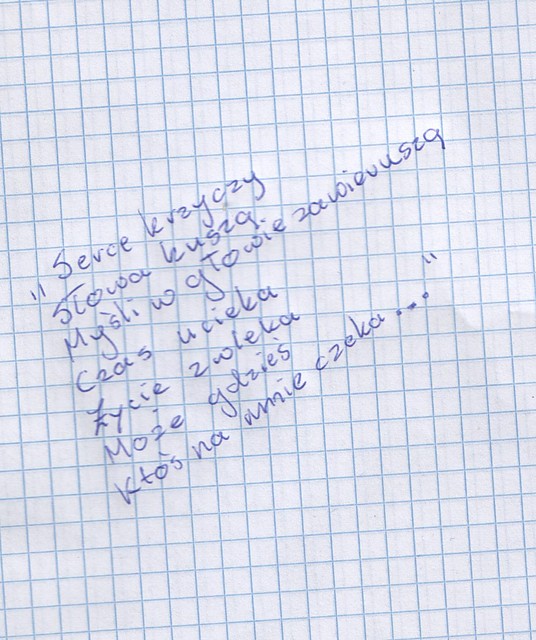 "Serce krzyczy
Słowa kuszą
Myśli w głowie zawieruszą
Czas ucieka
Życie zwleka
Może gdzieś
Ktoś na mnie czeka..."